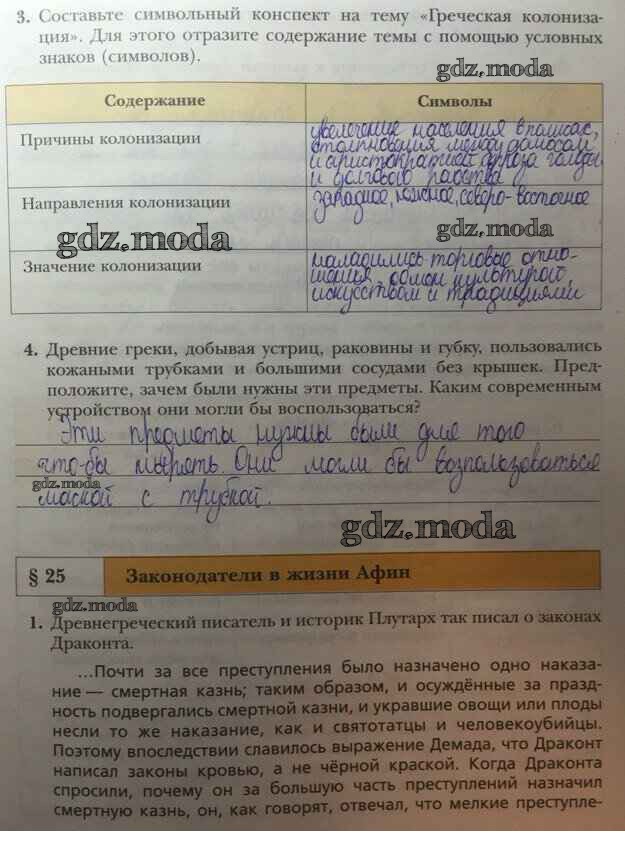 3. Составьте символьный конспект на тему «Греческая колониза-
ция». Для этого отразите содержание темы с помощью условных
знаков (символов).
gdz.moda
Содержание
Символы
Причины колонизации
увеличение населения в полисах,
столкновения между демосом
и аристократией, угроза голода
и долгового рабства
Направления колонизации
западное, южное, северо-восточное
gdz.moda
gdz.moda
Значение колонизации
наладились торговые отно-
шения, обмен культурой,
искусством и традициями
4. Древние греки, добывая устриц, раковины и губку, пользовались
кожаными трубками и большими сосудами без крышек. Пред-
положите, зачем были нужны эти предметы. Каким современным
устройством они могли бы воспользоваться?
Эти предметы нужны были для того
что-бы нырять. Они могли бы возпользоваться
gdz.moda
маской с трубкой.
gdz.moda
§ 25
Законодатели в жизни Афин
gdz.moda
1. Древнегреческий писатель и историк Плутарх так писал о законах
Драконта.
...Почти за все преступления было назначено одно наказа-
ние — смертная казнь; таким образом, и осуждённые за празд-
ность подвергались смертной казни, и укравшие овощи или плоды
несли то же наказание, как и святотатцы и человекоубийцы.
Поэтому впоследствии славилось выражение Демада, что Драконт
написал законы кровью, а не чёрной краской. Когда Драконта
спросили, почему он за большую часть преступлений назначил
смертную казнь, он, как говорят, отвечал, что мелкие преступле-